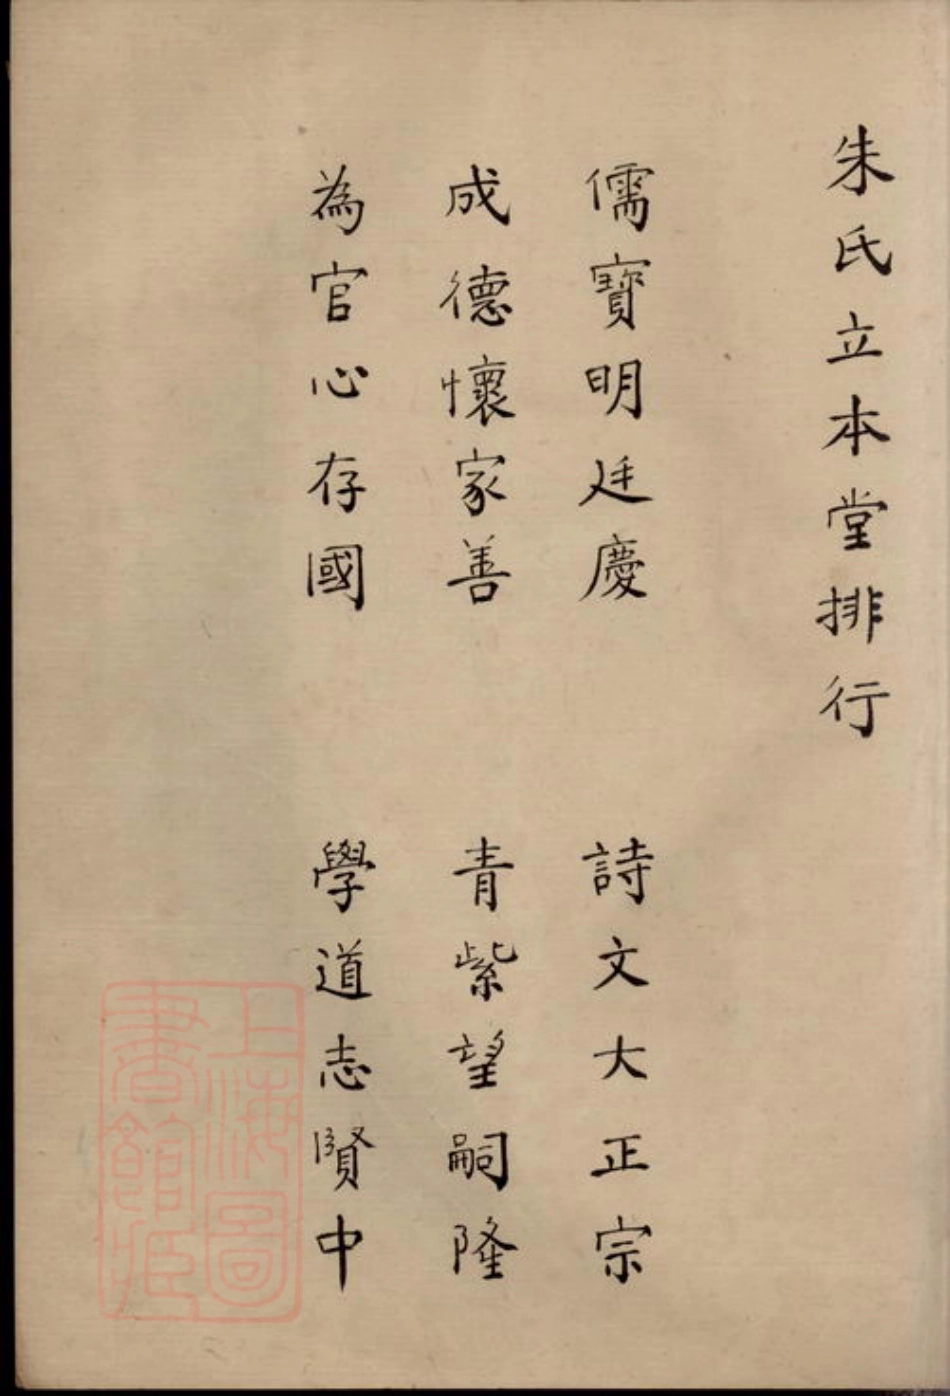 朱氏立本堂排行
儒寶明廷慶 詩文大正宗
成德懷家善 青紫望嗣隆
為官心存國 學道志賢中
上海圖書館藏